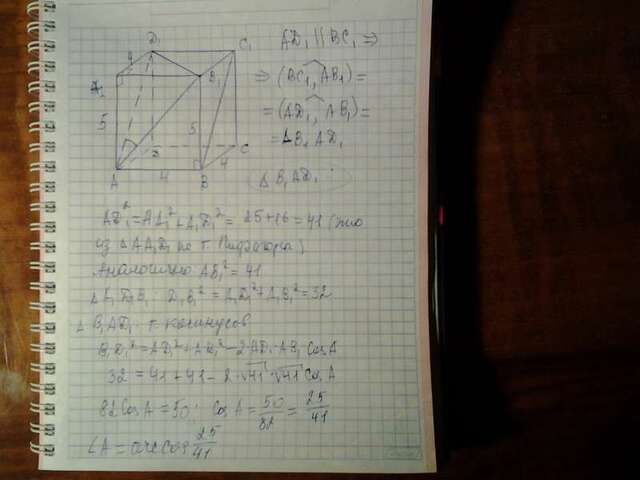 D₁
C₁
4
A₁
B₁
5
5
D
C
4
A
4
B
AD₁ || BC₁ ⇒
⇒ (BC₁, AB₁) =
= (AD₁, AB₁) =
= ∠B₁AD₁
△ B₁AD₁.
AD₁² = AA₁² + A₁D₁² = 25 + 16 = 41 (это
из △ AA₁D₁ по т. Пифагора)
Аналогично AB₁² = 41
△ A₁D₁B₁: D₁B₁² = A₁D₁² + A₁B₁² = 32
△ B₁AD₁ т. косинусов
B₁D₁² = AD₁² + AB₁² - 2AD₁·AB₁·cos A
32 = 41 + 41 - 2·√41·√41 cos A
82 cos A = 50; cos A = 50/82 = 25/41
∠A = arccos 25/41